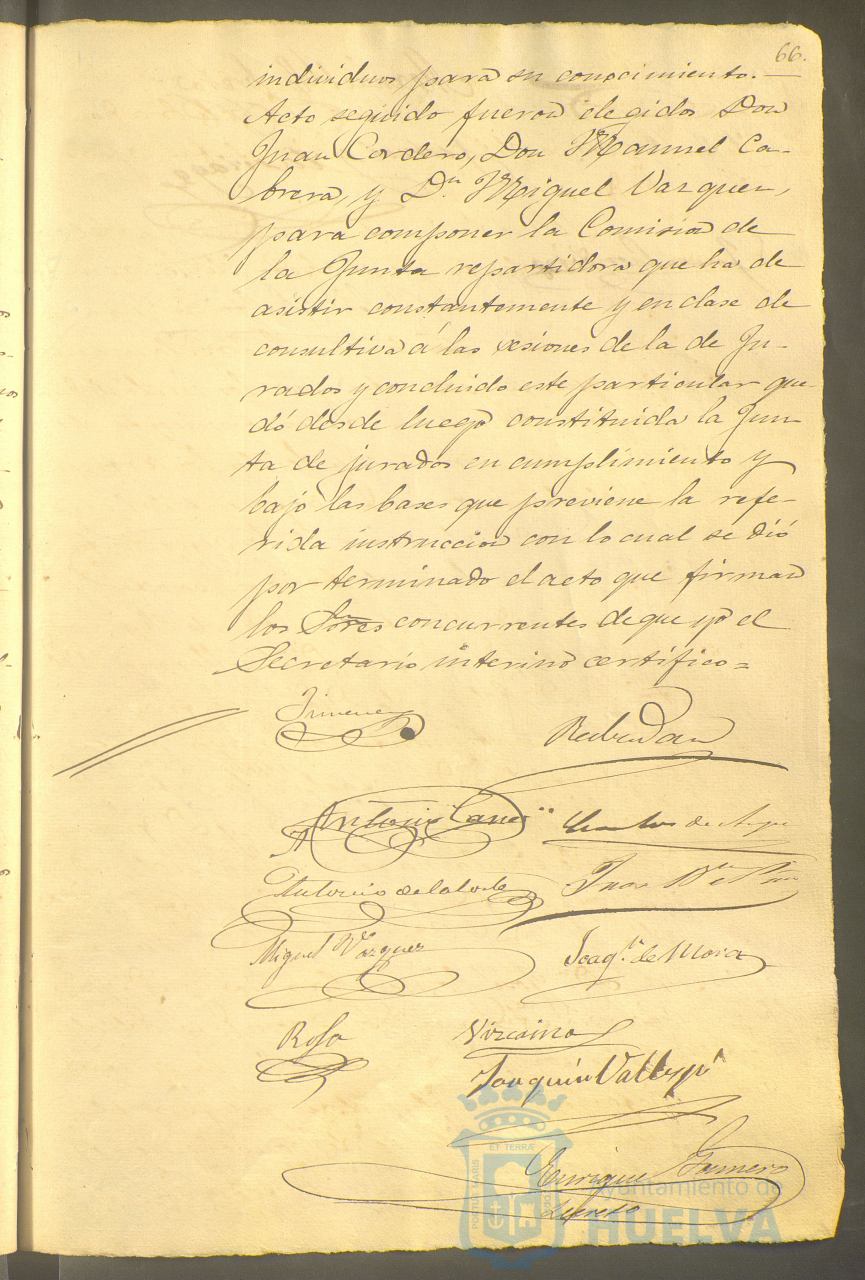 66.
individuos para su conocimiento.—
Acto seguido fueron elegidos Don
Juan Cordero, Don Manuel Ca-
brera, y Dn. Miguel Vazquez,
para componer la Comision de
la Junta repartidora que ha de
asistir constantemente y en clase de
consultiva á las sesiones de la de Ju-
rados y concluido este particular que-
dó desde luego constituida la Jun-
ta de jurados en cumplimiento y
bajo las bases que previene la refe-
rida instruccion con lo cual se dió
por terminado el acto que firman
los Sres concurrentes de que yo el
Secretario interino certifico=
Jimenez
Antonio
Antonio de la Corte
Juan
Miguel Vazquez
Joaqn. de Mora
Rofa
Vizcaino
Joaquin Vallespi
Enrique
Secreto
ET TERRÆ
PORTUS MARIS
Ayuntamiento de
HUELVA